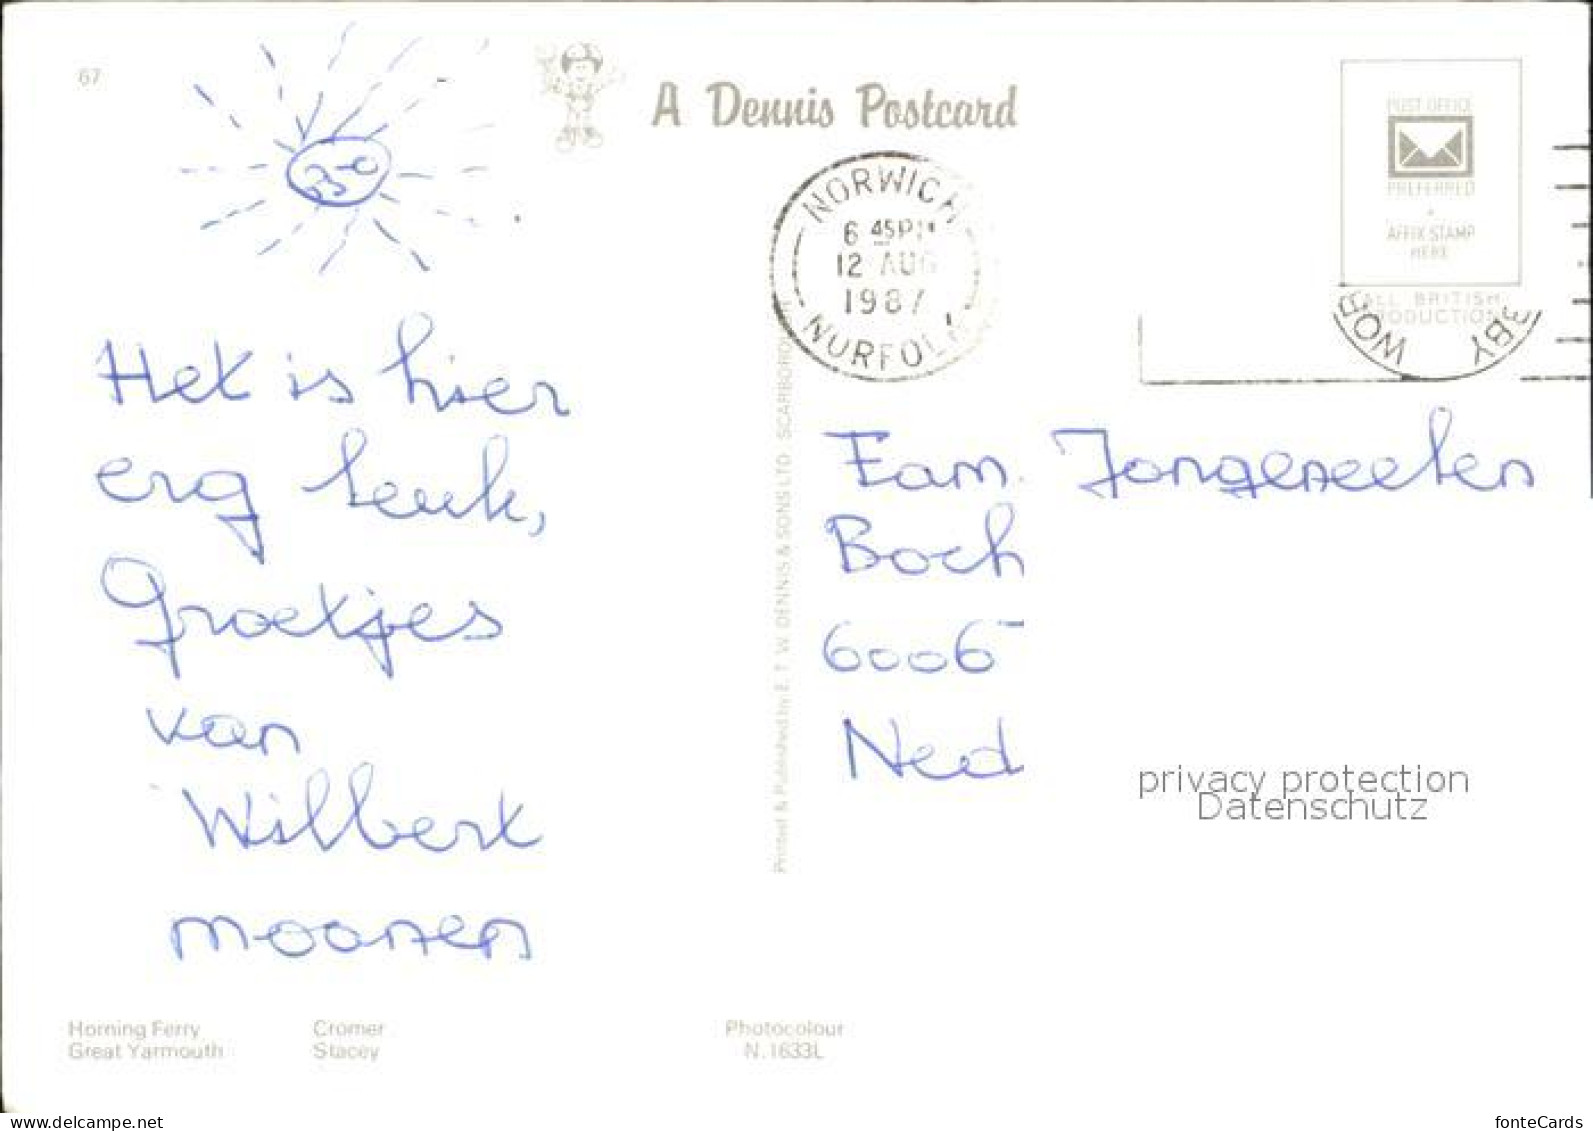 67
A Dennis Postcard
POST OFFICE
PREFERRED
AFFIX STAMP
HERE
ALL BRITISH
PRODUCTION
NORWICH
6 45PM
12 AUG
1987
NORFOLK
Het is hier
erg leuk,
Groetjes
van
Wilbert
moonen
Fam. Jongeneelen
Boch
6006
Ned
Printed & Published by E. T. W. DENNIS & SONS LTD SCARBOROUGH
privacy protection
Datenschutz
Horning Ferry Cromer
Great Yarmouth Stacey
Photocolour
N.1633L
https://www.delcampe.net
fonteCards